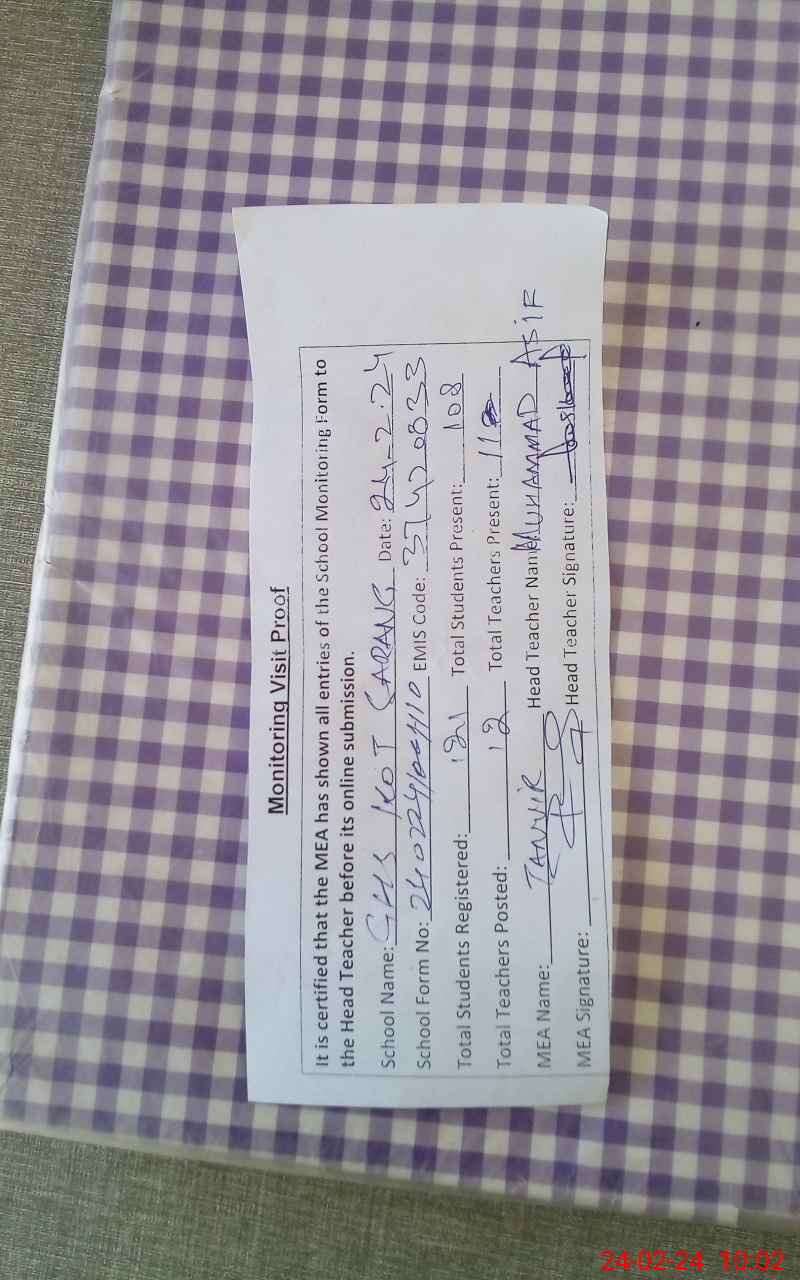 Monitoring Visit Proof
It is certified that the MEA has shown all entries of the School Monitoring Form to
the Head Teacher before its online submission.
School Name: GHS KOT SARANG Date: 24-2-24
School Form No: EMIS Code: 37420833
Total Students Registered: 121 Total Students Present: 108
Total Teachers Posted: 12 Total Teachers Present: 11
MEA Name: TANVIR Head Teacher Name MUHAMMAD ASIF
MEA Signature: Head Teacher Signature:
24-02-24 10:02